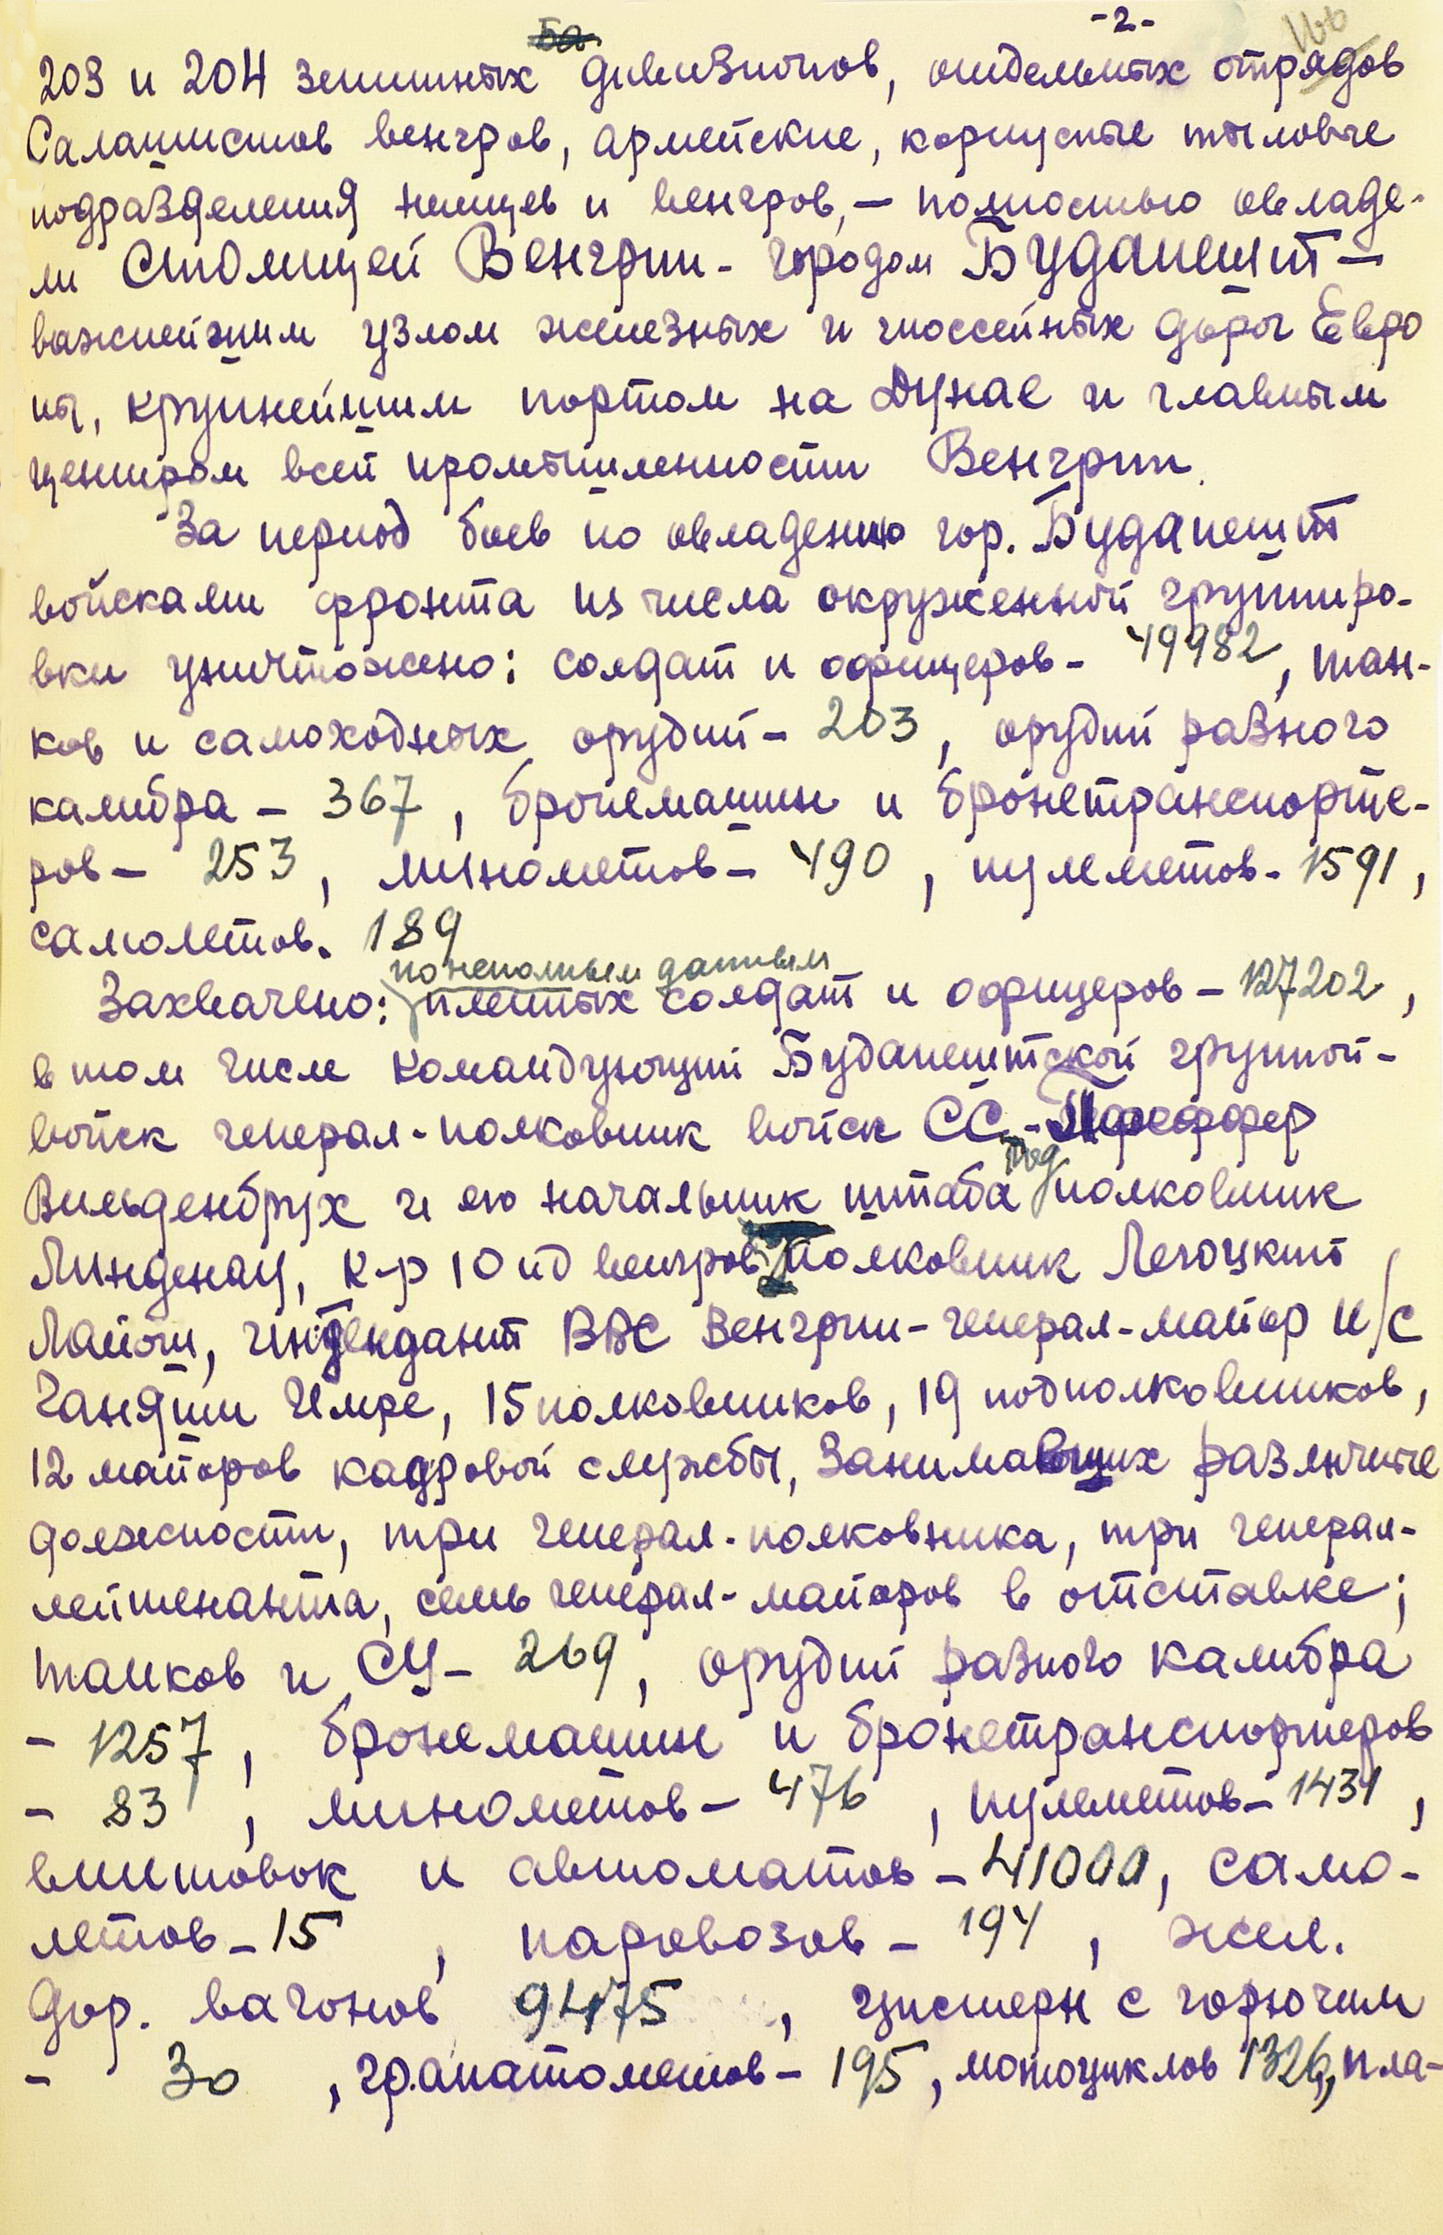 -2-
203 и 204 зенитных дивизионов, отдельных отрядов
Салашистов венгров, армейские, корпусные тыловые
подразделения немцев и венгров, — полностью овладе-
ли столицей Венгрии - городом Будапешт —
важнейшим узлом железных и шоссейных дорог Евро
пы, крупнейшим портом на Дунае и главным
центром всей промышленности Венгрии.
За период боев по овладению гор. Будапешт
войсками фронта из числа окруженной группиро-
вки уничтожено: солдат и офицеров - 49982, тан-
ков и самоходных орудий - 203, орудий разного
калибра - 367, бронемашин и бронетранспорте-
ров - 253, минометов - 490, пулеметов - 1591,
самолетов. 189
по неполным данным
Захвачено: пленных солдат и офицеров - 127202,
в том числе командующий Будапештской группой-
войск генерал-полковник войск СС - Пфеффер
Вильденбрух и его начальник штаба подполковник
Линденау, к-р 10 пд венгров полковник Легоцкий
Лайош, интендант ВВС Венгрии - генерал-майор и/с
Имре, 15 полковников, 19 подполковников,
12 майоров кадровой службы, занимавших различные
должности, три генерал-полковника, три генерал-
лейтенанта, семь генерал-майоров в отставке;
танков и СУ - 269, орудий разного калибра
- 1257, бронемашин и бронетранспортеров
- 83, минометов - 476, пулеметов - 1431,
винтовок и автоматов - 41000, само-
летов - 15, паровозов - 194, жел.
дор. вагонов 9475, цистерн с горючим
- 30, гранатометов - 195, мотоциклов 1326, пла-